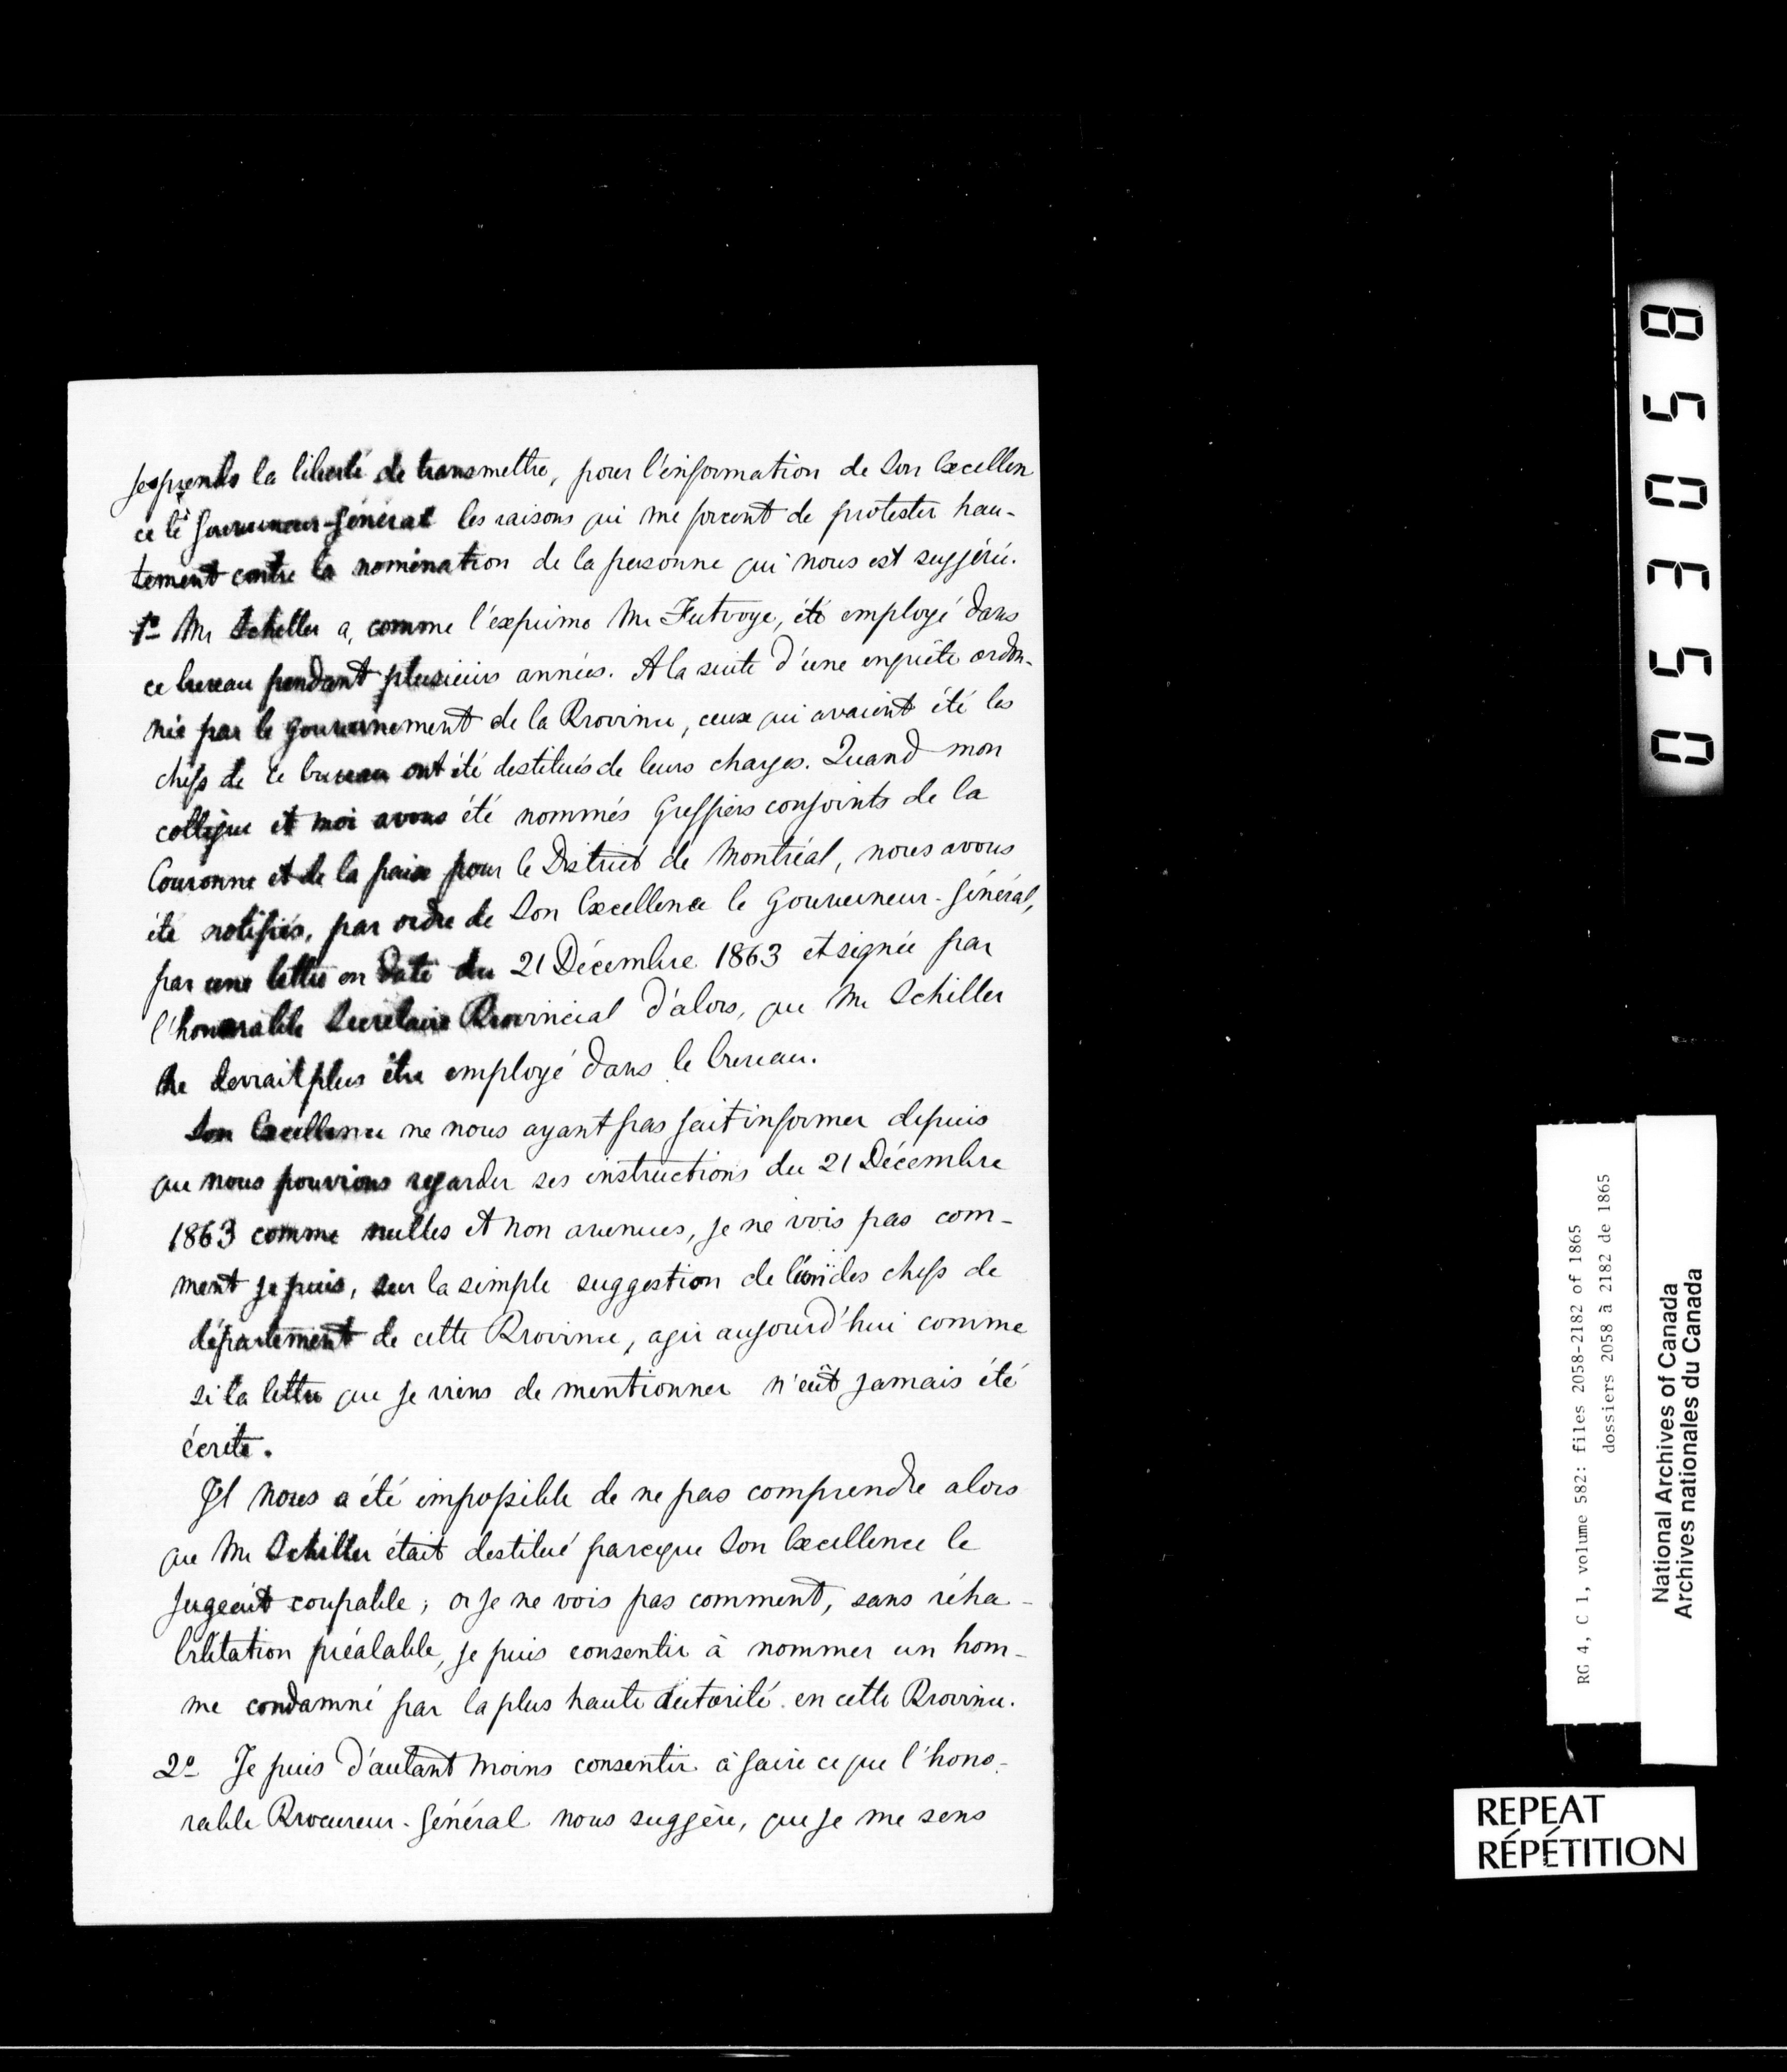 Je prends la liberté de transmettre, pour l'information de Son Excellen
ce le Gouverneur-Général les raisons qui me forcent de protester hau-
tement contre la nomination de la personne qui nous est suggérée.
1º Mr Schiller a, comme l'exprime Mr Futvoye, été employé dans
ce bureau pendant plusieurs années. A la suite d'une enquête ordon-
née par le gouvernement de la Province, ceux qui avaient été les
chefs de ce bureau ont été destitués de leurs charges. Quand mon
collègue et moi avons été nommés Greffiers conjoints de la
Couronne et de la paix pour le District de Montréal, nous avons
été notifiés, par ordre de Son Excellence le Gouverneur-Général,
par une lettre en date du 21 Décembre 1863 et signée par
l'honorable Secrétaire Provincial d'alors, que Mr Schiller
ne devrait plus être employé dans le bureau.
Son Excellence ne nous ayant pas fait informer depuis
que nous pouvions regarder ses instructions du 21 Décembre
1863 comme nulles et non avenues, je ne vois pas com-
ment je puis, sur la simple suggestion de l'un des chefs de
département de cette Province, agir aujourd'hui comme
si la lettre que je viens de mentionner n'eût jamais été
écrite.
Il nous a été impossible de ne pas comprendre alors
que Mr Schiller était destitué parceque Son Excellence le
jugeait coupable; or je ne vois pas comment, sans réha-
bilitation préalable, je puis consentir à nommer un hom-
me condamné par la plus haute autorité en cette Province.
2º Je puis d'autant moins consentir à faire ce que l'hono-
rable Procureur-Général nous suggère, que je me sens
050358
RG 4, C 1, volume 582: files 2058-2182 of 1865
dossiers 2058 à 2182 de 1865
National Archives of Canada
Archives nationales du Canada
REPEAT
RÉPÉTITION